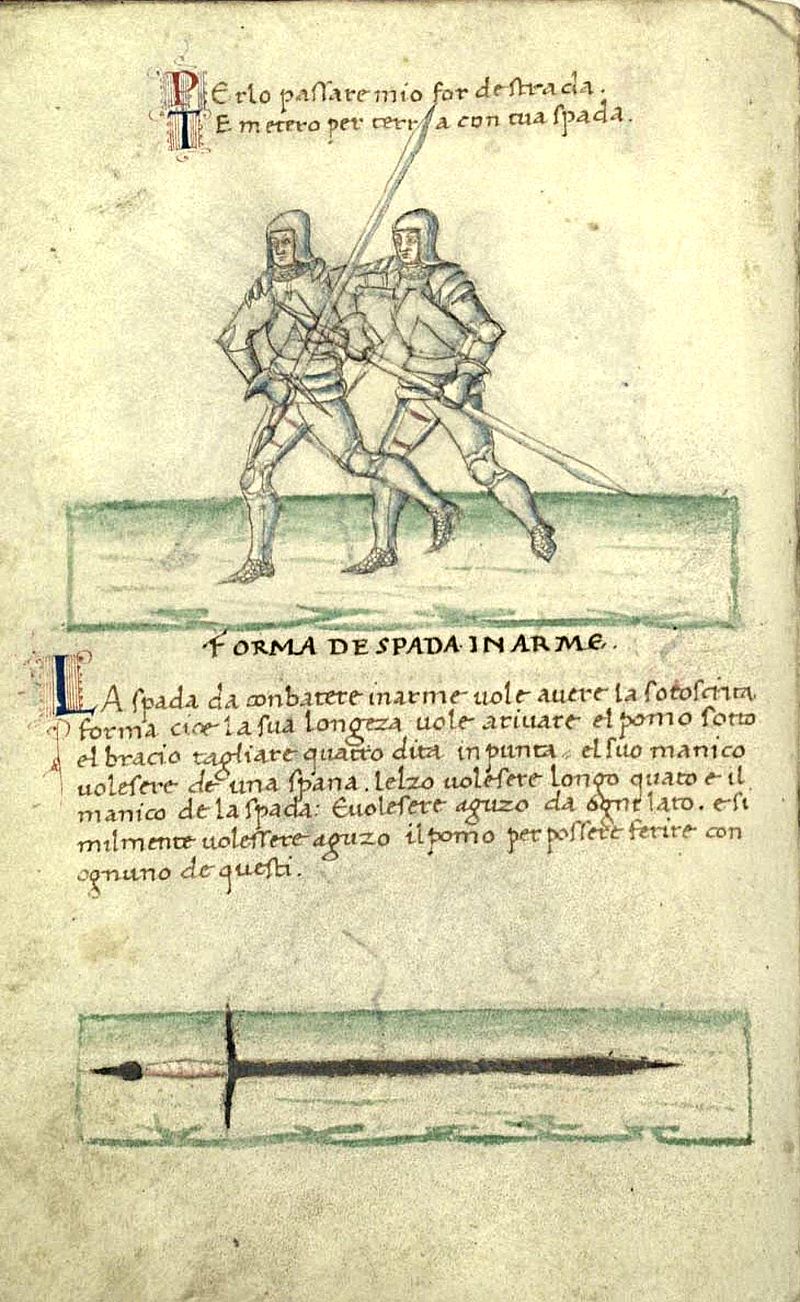 PErlo passare mio for de strada.
TE metero per terra con tua spada.
FORMA DE SPADA IN ARME.
LA spada da conbatere in arme uole auere la sotoscrita.
forma cioe la sua longeza uole ariuare el pomo sotto
el bracio tagliare quatro dita in punta. el suo manico
uolesere de una spana. Lelzo uolesere longo quato e il
manico de la spada: Euolesere aguzo da ogne lato. e si
milmente uolessere aguzo il pomo per possere ferire con
ognuno de questi.